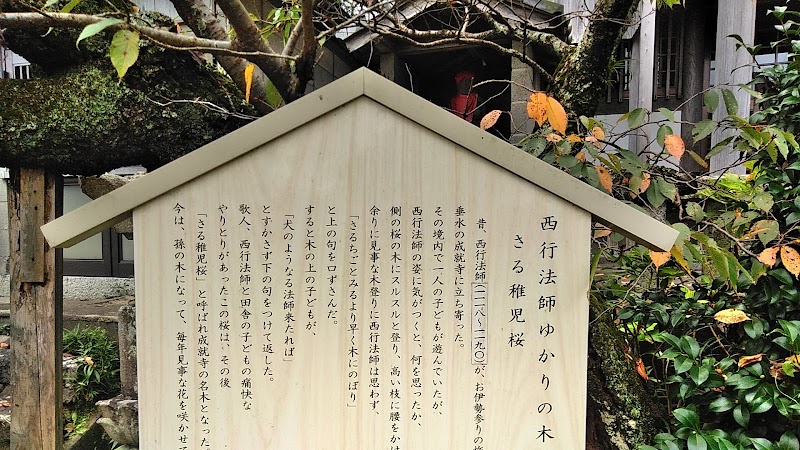 西行法師ゆかりの木
さる稚児桜
昔、西行法師(一一一八～一一九〇)が、お伊勢参りの
垂水の成就寺に立ち寄った。
その境内で一人の子どもが遊んでいたが、
西行法師の姿に気がつくと、何を思ったか、
側の桜の木にスルスルと登り、高い枝に腰をかけ
余りに見事な木登りに西行法師は思わず、
「さるちごとみるより早く木にのぼり」
と上の句を口ずさんだ。
すると木の上の子どもが、
「犬のようなる法師来たれば」
とすかさず下の句をつけて返した。
歌人、西行法師と田舎の子どもの痛快な
やりとりがあったこの桜は、その後
「さる稚児桜」と呼ばれ成就寺の名木となった
今は、孫の木になって、毎年見事な花を咲かせて